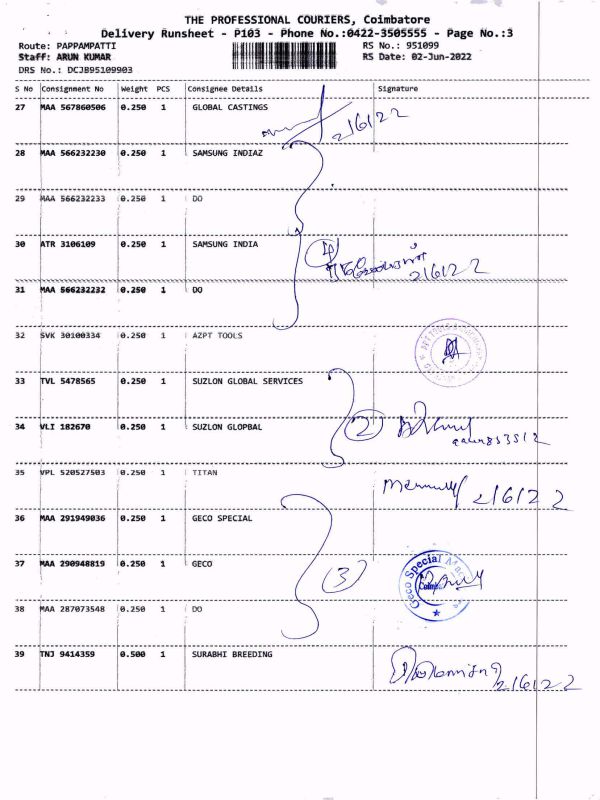 THE PROFESSIONAL COURIERS, Coimbatore
Delivery Runsheet - P103 - Phone No.:0422-3505555 - Page No.:3
Route: PAPPAMPATTI RS No.: 951099
Staff: ARUN KUMAR RS Date: 02-Jun-2022
DRS No.: DCJB95109903
S No Consignment No Weight PCS Consignee Details Signature
27 MAA 567860506 0.250 1 GLOBAL CASTINGS
2/6/22
28 MAA 566232230 0.250 1 SAMSUNG INDIAZ
29 MAA 566232233 0.250 1 DO
30 ATR 3106109 0.250 1 SAMSUNG INDIA
4
2/6/22
31 MAA 566232232 0.250 1 DO
32 SVK 30100334 0.250 1 AZPT TOOLS
33 TVL 5478565 0.250 1 SUZLON GLOBAL SERVICES
34 VLI 182670 0.250 1 SUZLON GLOPBAL
2
35 VPL 520527503 0.250 1 TITAN
2/6/22
36 MAA 291949036 0.250 1 GECO SPECIAL
37 MAA 290948819 0.250 1 GECO
3
Geco Special
38 MAA 287073548 0.250 1 DO
39 TNJ 9414359 0.500 1 SURABHI BREEDING
2/6/22